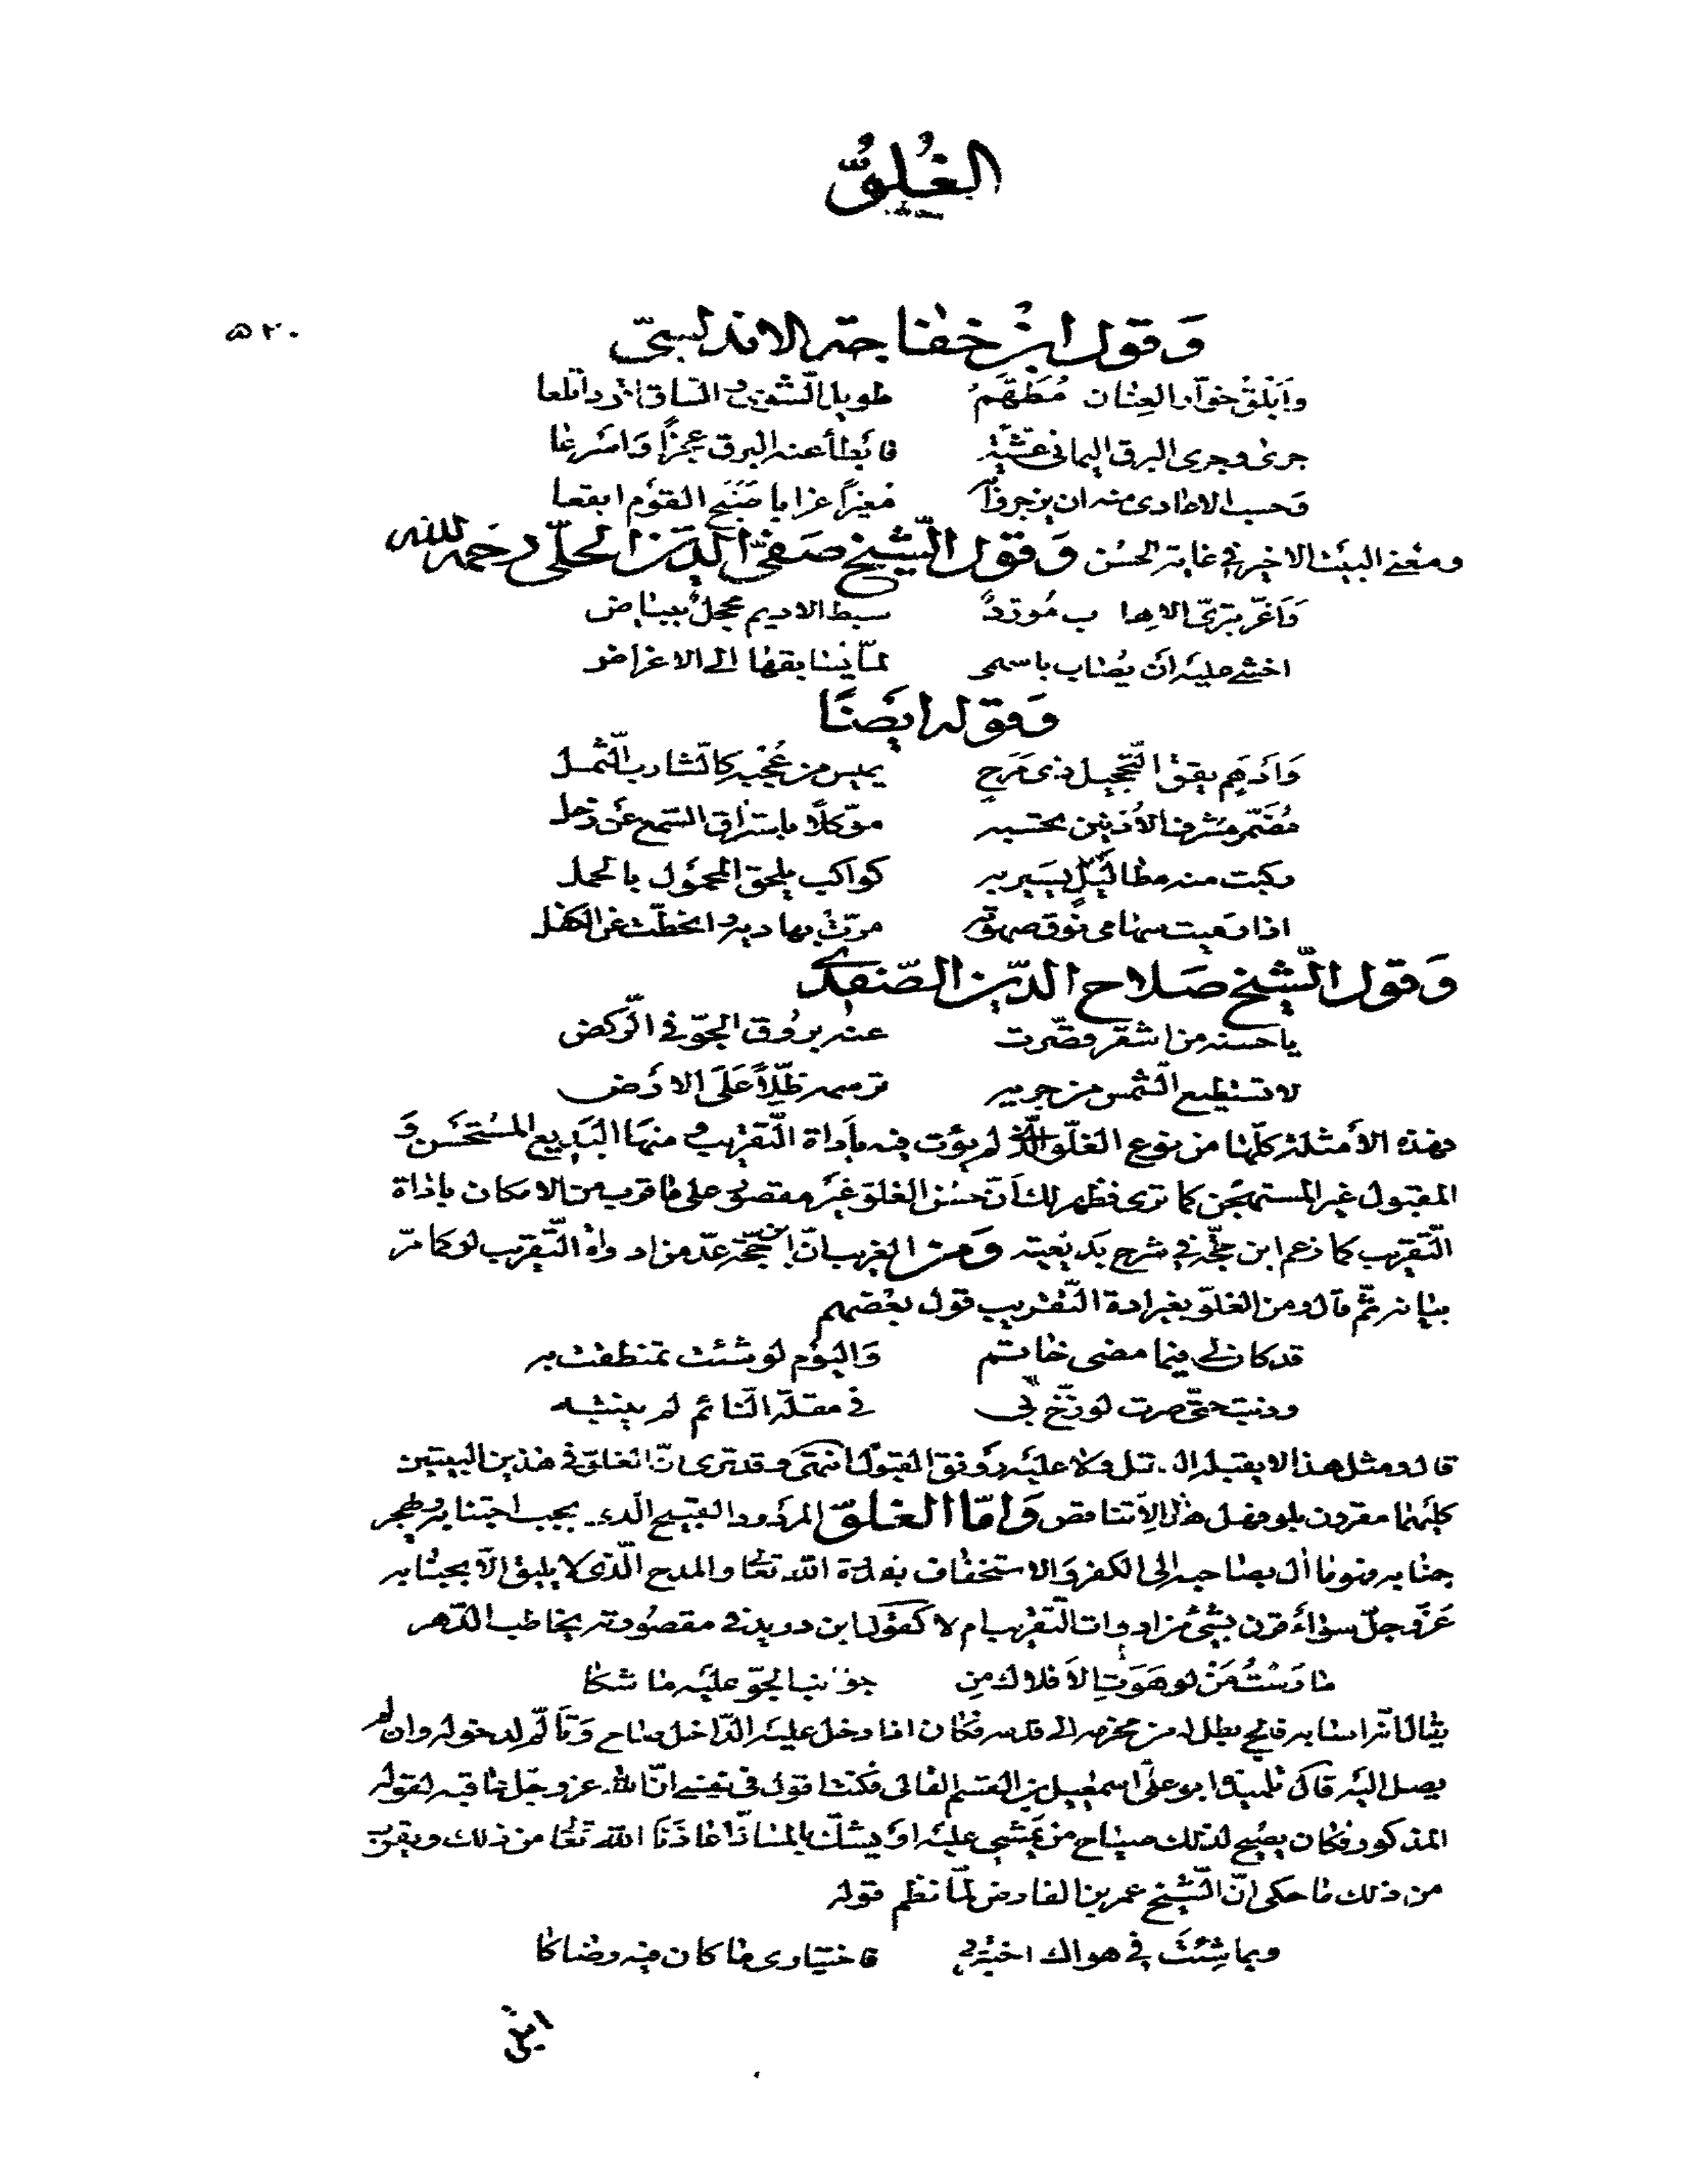 الغُلوُّ
٥٢٠
وَقول ابن خفاجة الاندلسيّ
وأبْلق خوّار العِنان مُطَهَّمُ طويل الشّوى والسّاق اقود اتلعا
جرى وجرى البرق اليمانى عشيّة فابْطأ عنه البرق عجزًا وَاسْرعا
وَحسب الاعادى منه ان يزجروا مُغيرًا غرابا صَبَّح القوْم ابقعا
ومعْنى البيْت الاخير فى غاية الحسْن وَقول الشّيخ صَفىّ الدّين الحلّى رحمه الله
وَاغرّ تبرىّ الاها ب مُورّدٌ سبط الاديم محجّلٌ ببياض
اخشى عليْه انْ يُصاب باسهمى ممّا يُسابقها الى الاغراض
وَقوله ايْضًا
وَادهم يقق التّحجيل ذى مَرَحٍ يميس من عُجْبه كالشّارب الثّمل
مُضَمّر مشرف الاُذنين تحسبه موّكلًا باستراق السّمع عن زحل
ركبت منه مطا ليْلٍ يسير به كواكب يلحق المحمول بالحمل
اذا رميت سهامى فوْق صهوته مرّت بهاديه وانحطّت عن الكفل
وَقول الشّيخ صَلاح الدّين الصّفدى
ياحسنه من اشقر قصّرت عنه بروق الجوّ فى الرّكض
لا تستطيع الشّمس من جريه ترسمه ظلّاً عَلَى الارْض
فهذه الأمثلة كلّها من نوع الغلّو الّذى لم يؤت فيه بأداة التّقريب ومنها البَديع المسْتحسَن وَ
المقبول غير المستهجن كما ترى فظهر لك أنّ حسْن الغلوّ غيْر مقصور على ما قرب من الامكان باداة
التّقريب كما زعم ابن حجّة فى شرح بَديعيته وَمن الغريب انّ ابن حجّة عدّ من ادوات التّقريب لو كما مرّ
بيانه ثمّ قال ومن الغلوّ بغير اداة التّقريب قول بعْضهم
قد كان لى فيما مضى خاتم وَاليوْم لو شئت تمنطقت به
وذبت حتّى صرت لو زجّ بى فى مقلة النّائم لم ينتبه
قال ومثل هذا لا يقبله ال تل ولا عليْه روْنق القبول انتهى وقد ترى انّ الغلوّ فى هذين البيتين
كليْهما مقرون بلو فهل هذا الاّ تناقص وَامّا الغلوّ المرْدود القبيح الّذى يجب اجتنابه وهجر
جنابه فهو ما ادّى بصاحبه الى الكفر وَالاستخفاف بقدرة الله تعالى والمدح الّذى لا يليق الّا بجنابه
عزّ وجلّ سواءً قرن بشئ من ادوات التّقريب ام لا كقوْل ابن دريد فى مقصُورته يخاطب الدّهر
مارَسْتَ مَنْ لو هَوَتِ الاَفلاك مِن جوانب الجوّ عليْه ما شكا
يقال انّه اصابه فالج بطل له من محزمه الى قدمه فكان اذا دخل عليْه الدّاخل صاح وَتألّم لدخوله وان لم
يصل اليْه قال تلميذه ابو علىّ اسمعيل بن القسم القالى فكنت اقول فى نفسى انّ الله عزّ وجلّ عاقبه لقوله
المذكور فكان يصيح لذلك صياح من يمْشى عليْه اوْ يسّل بالمسال اعاذنَا الله تعالى من ذلك ويقرب
من ذلك ما حكى انّ الشّيخ عمر بن الفارض لمّا نظم قوله
وبما شِئْتَ فى هواك اختبرنى فاختيارى ما كان فيه رضاكا